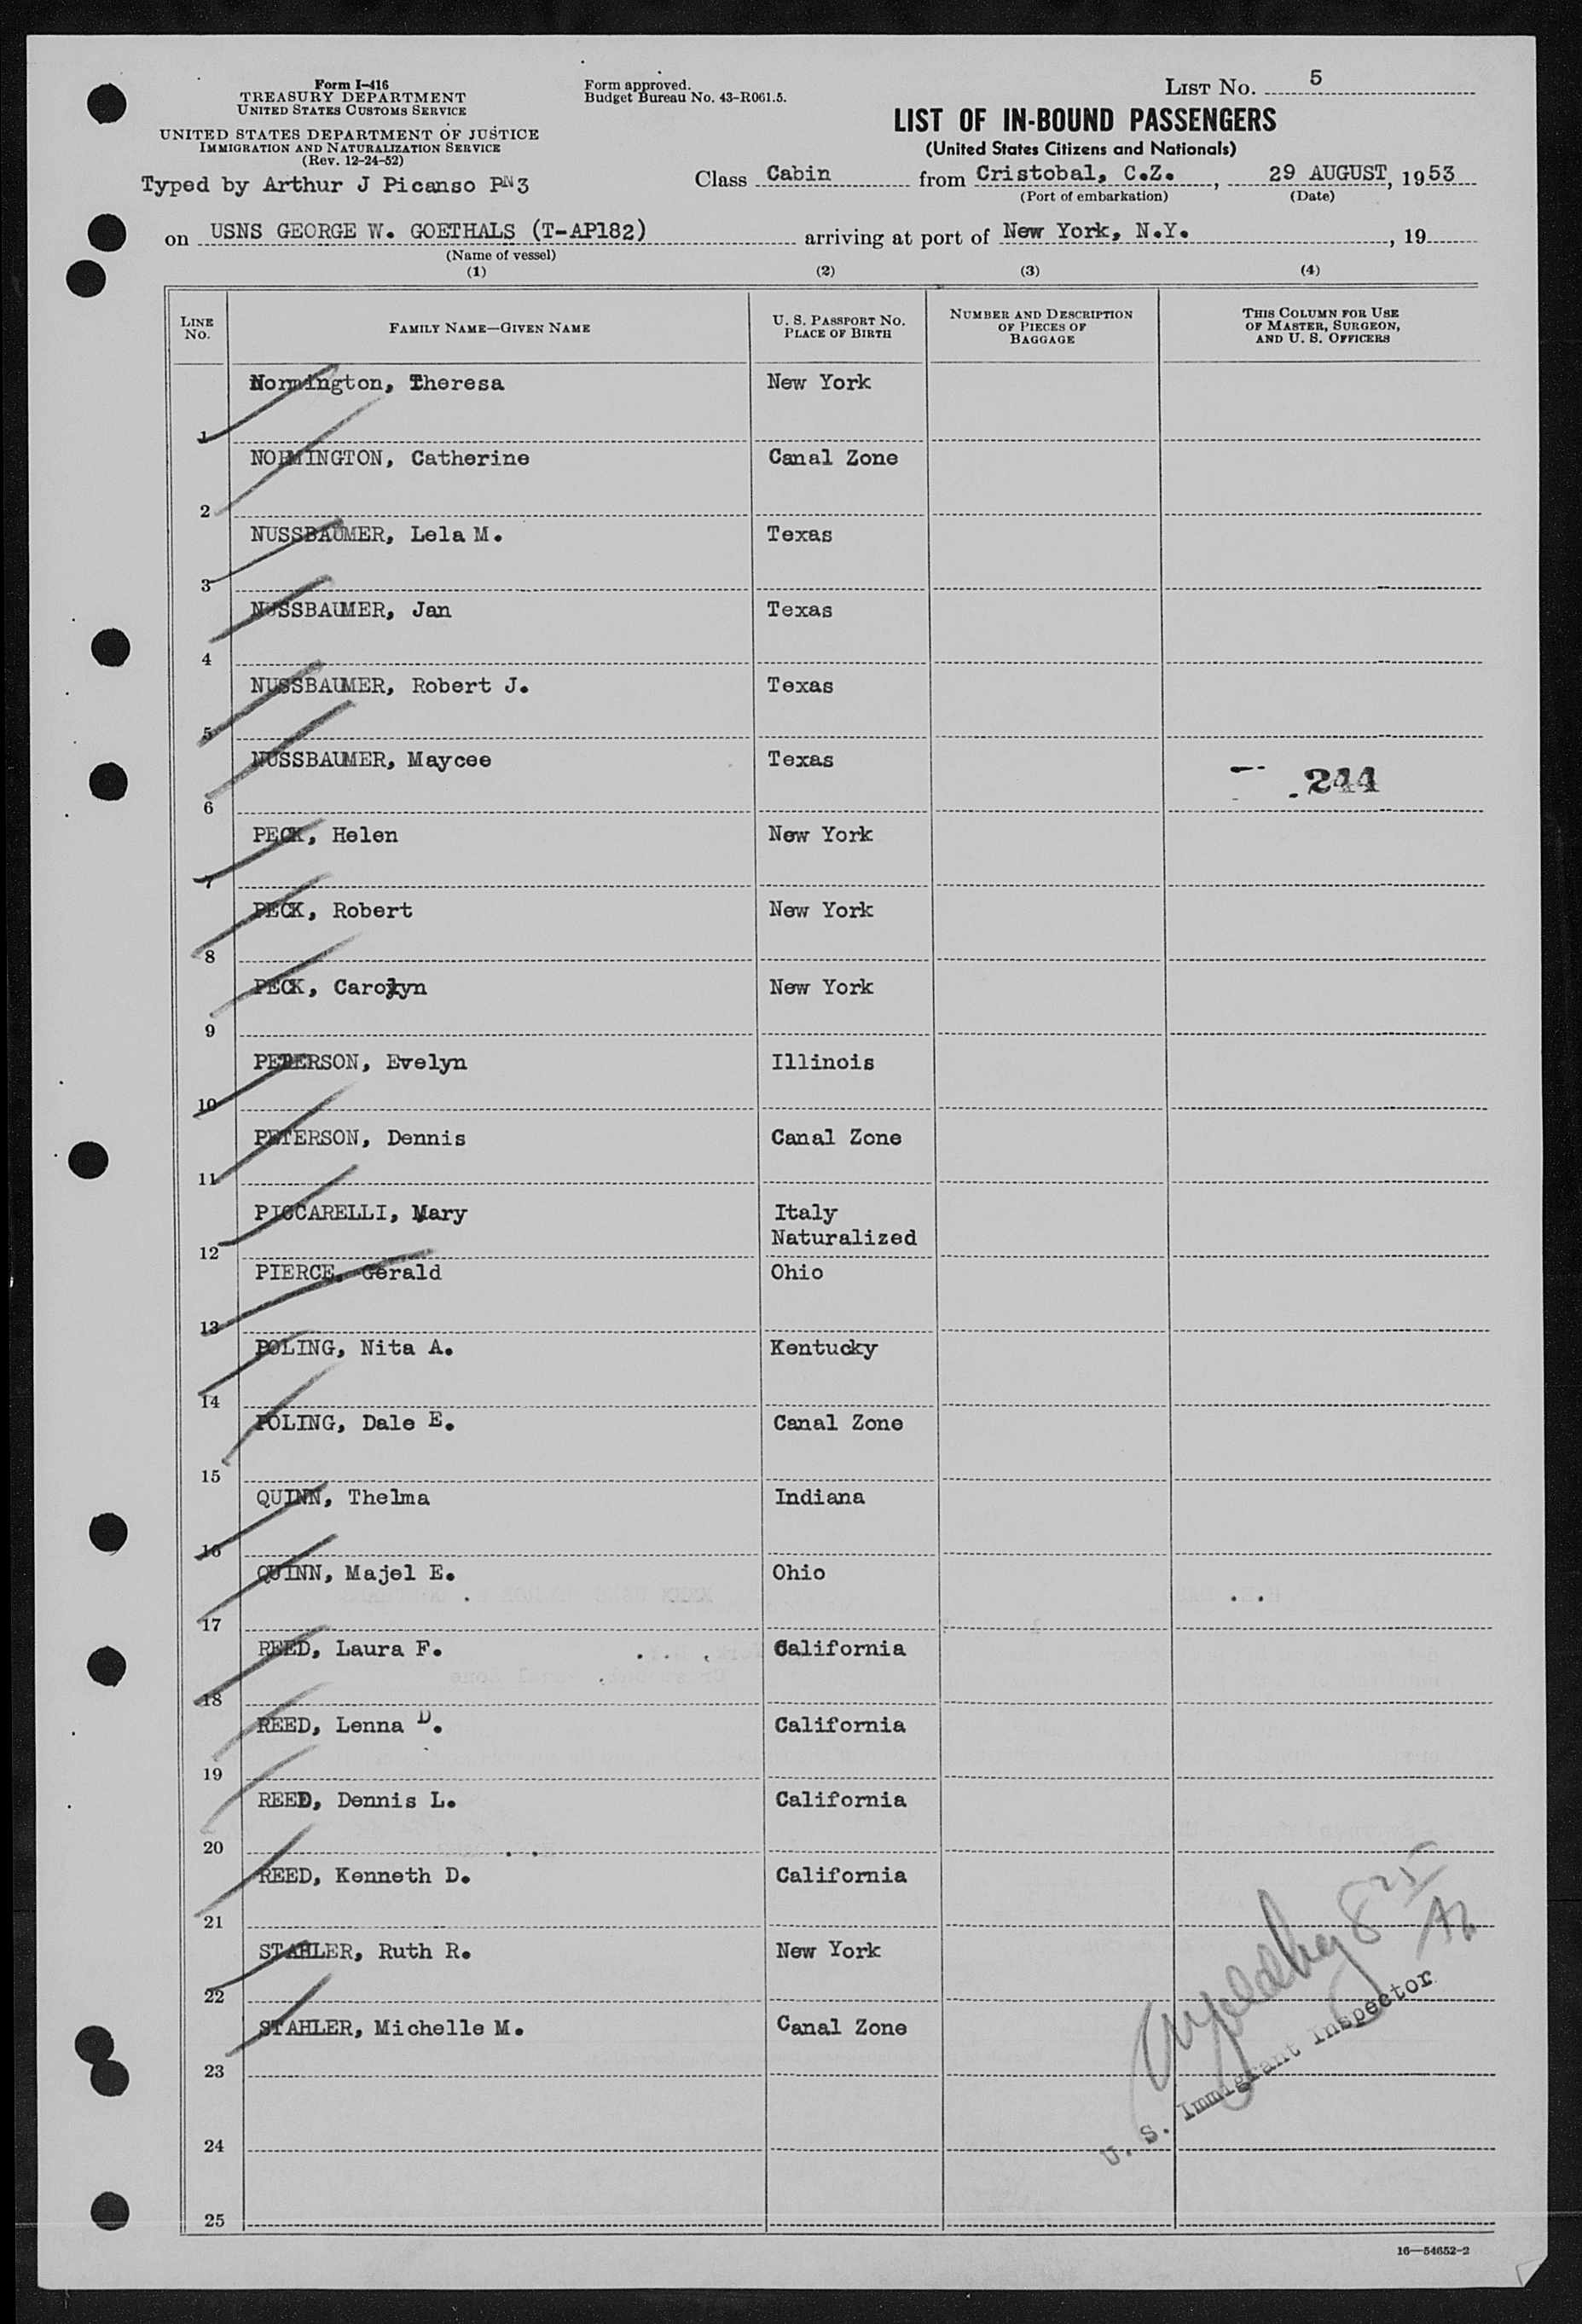 Form I-416
TREASURY DEPARTMENT
UNITED STATES CUSTOMS SERVICE
UNITED STATES DEPARTMENT OF JUSTICE
IMMIGRATION AND NATURALIZATION SERVICE
(Rev. 12-24-52)
Typed by Arthur J Picanso PN3
Form approved.
Budget Bureau No. 43-R061.5.
LIST No. 5
LIST OF IN-BOUND PASSENGERS
(United States Citizens and Nationals)
Class Cabin from Cristobal, C.Z., 29 AUGUST, 1953
(Port of embarkation) (Date)
on USNS GEORGE W. GOETHALS (T-AP182) arriving at port of New York, N.Y., 19
(Name of vessel)
(1) (2) (3) (4)
LINE No. FAMILY NAME—GIVEN NAME U. S. PASSPORT No. PLACE OF BIRTH NUMBER AND DESCRIPTION OF PIECES OF BAGGAGE THIS COLUMN FOR USE OF MASTER, SURGEON, AND U. S. OFFICERS
1 Normington, Theresa New York
2 NORMINGTON, Catherine Canal Zone
3 NUSSBAUMER, Lela M. Texas
4 NUSSBAUMER, Jan Texas
5 NUSSBAUMER, Robert J. Texas
6 NUSSBAUMER, Maycee Texas 244
7 PECK, Helen New York
8 PECK, Robert New York
9 PECK, Carolyn New York
10 PETERSON, Evelyn Illinois
11 PETERSON, Dennis Canal Zone
12 PICCARELLI, Mary Italy Naturalized
13 PIERCE, Gerald Ohio
14 POLING, Nita A. Kentucky
15 POLING, Dale E. Canal Zone
16 QUINN, Thelma Indiana
17 QUINN, Majel E. Ohio
18 REED, Laura F. California
19 REED, Lenna D. California
20 REED, Dennis L. California
21 REED, Kenneth D. California
22 STAHLER, Ruth R. New York
23 STAHLER, Michelle M. Canal Zone
24
25
U. S. Immigrant Inspector
16—54652-2